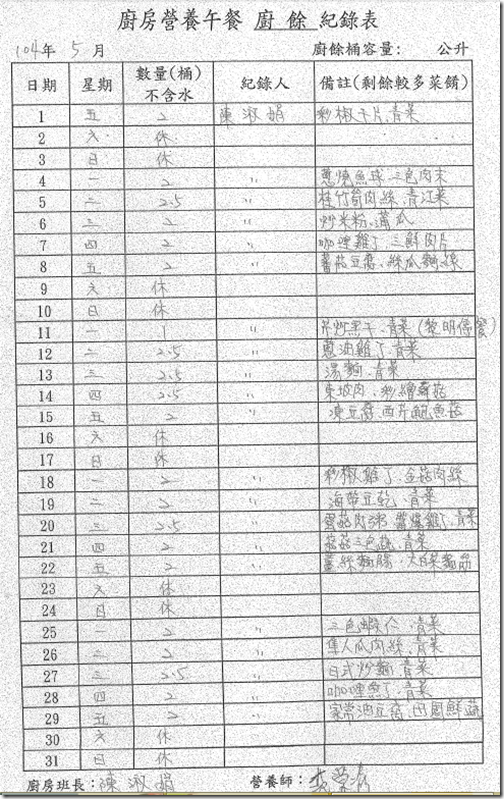 廚房營養午餐 廚 餘 紀錄表
104年 5 月 廚餘桶容量: 公升
日期 星期 數量(桶) 不含水 紀錄人 備註(剩餘較多菜餚)
1 五 2 陳淑娟 彩椒干片.青菜
2 六 休
3 日 休
4 一 2 〃 蔥燒魚球.三色肉末
5 二 2.5 〃 桂竹筍肉絲.青江菜
6 三 2 〃 炒米粉.蒲瓜
7 四 2 〃 咖哩雞丁.三鮮肉片
8 五 2 〃 蘑菇豆腐.絲瓜麵線
9 六 休
10 日 休
11 一 1 〃 芹炒黑干.青菜(黎明停餐)
12 二 2.5 〃 蔥油雞丁.青菜
13 三 2.5 〃 湯麵.青菜
14 四 2.5 〃 東坡肉.彩繪蘑菇
15 五 2 〃 凍豆腐.西芹鮑魚菇
16 六 休
17 日 休
18 一 2 〃 彩椒雞丁.金菇肉絲
19 二 2 〃 海帶豆乾.青菜
20 三 2.5 〃 肉粥.醬爆雞丁.青菜
21 四 2 〃 三色蔬.青菜
22 五 2 〃 薑絲麵腸.大白菜麵筋
23 六 休
24 日 休
25 一 2 〃 三色蝦仁.青菜
26 二 2 〃 隼人瓜肉絲.青菜
27 三 2.5 〃 日式炒麵.青菜
28 四 2 〃 咖哩魚丁.青菜
29 五 2 〃 家常油豆腐.田園鮮蔬
30 六 休
31 日 休
廚房班長:陳淑娟 營養師: